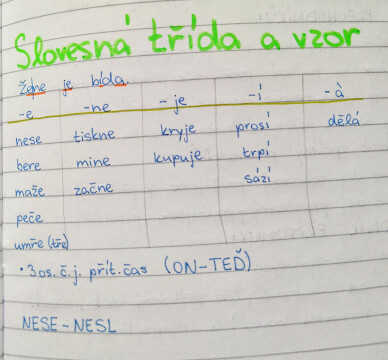 Slovesná třída a vzor
Žene je bída.
-e -ne -je -í -á
nese tiskne kryje prosí dělá
bere mine kupuje trpí
maže začne sází
peče
umře (tře)
• 3 os. č. j. přít. čas (ON-TEĎ)
NESE-NESL